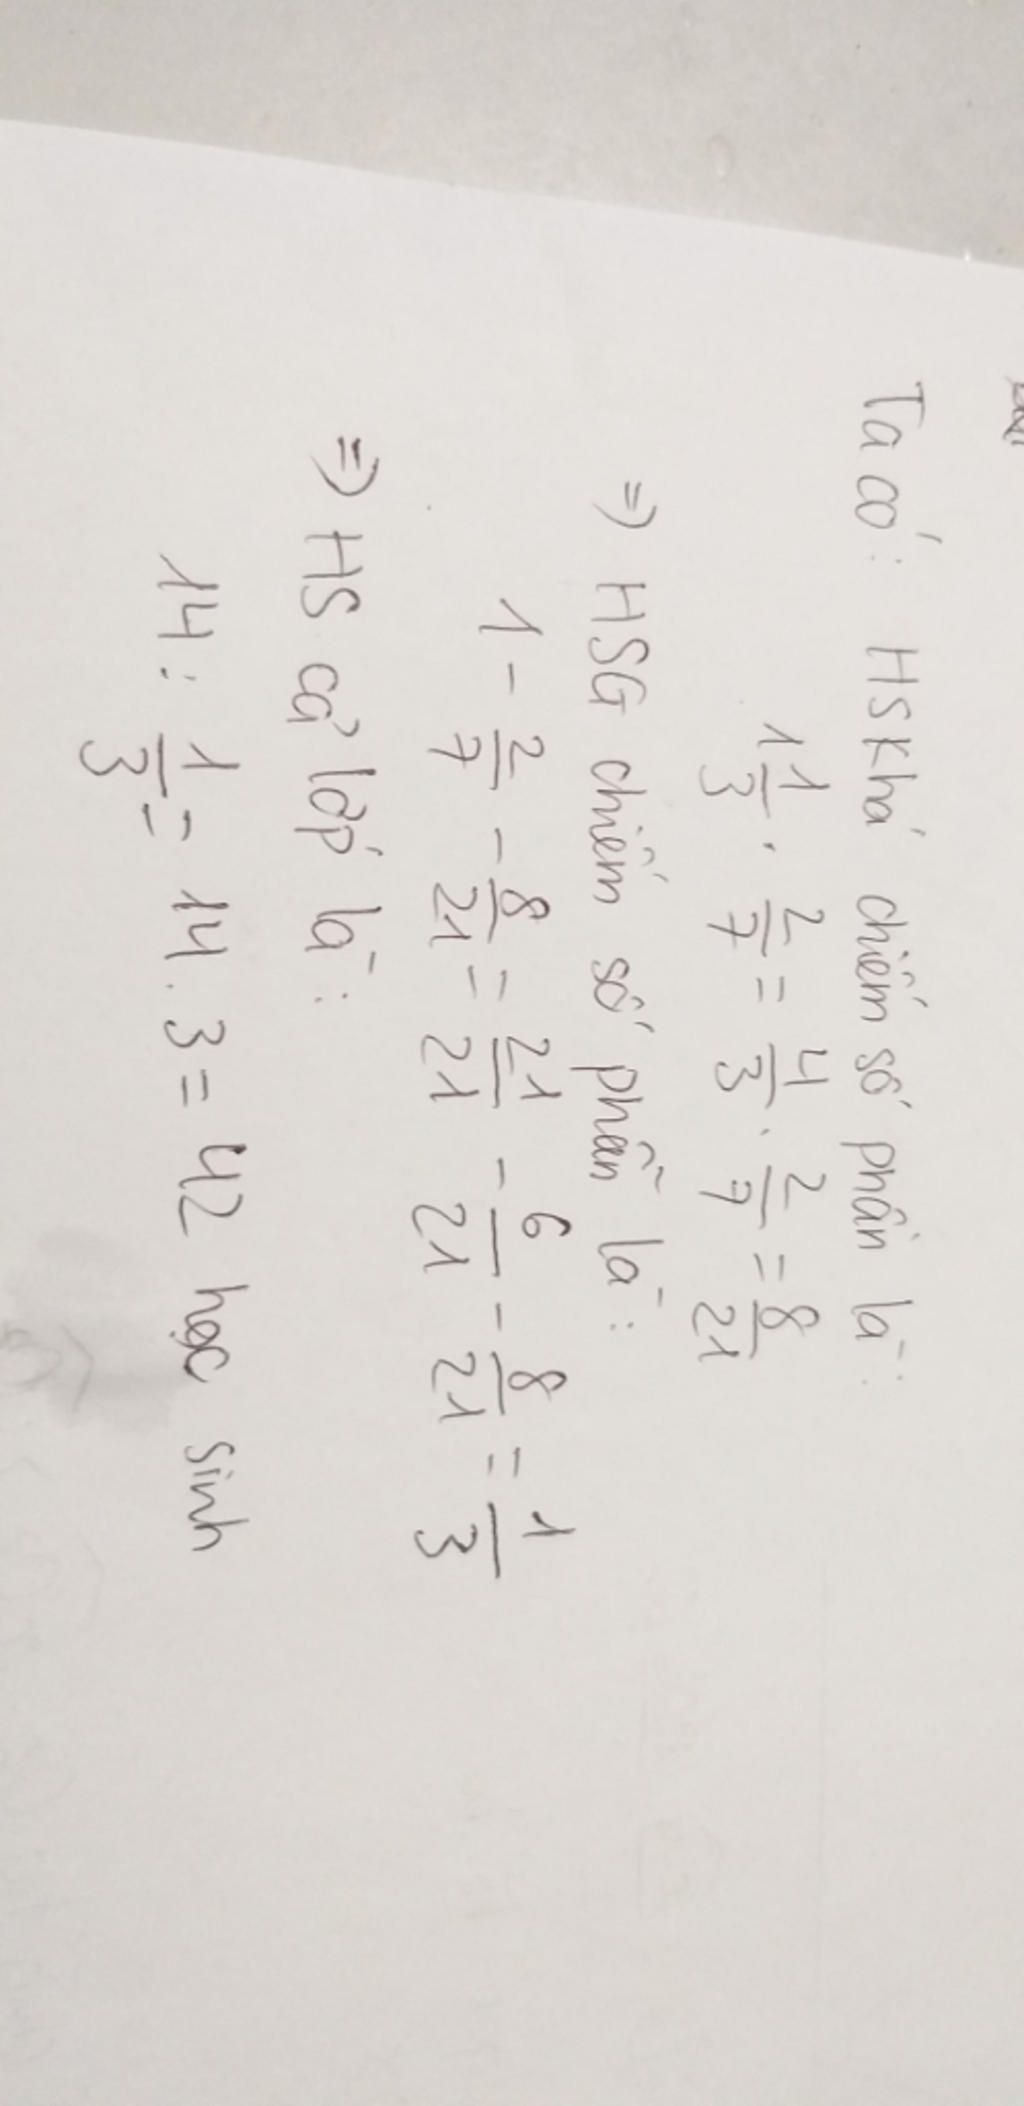 Ta có: HS Khá chiếm số phần là:
1 1/3 . 2/7 = 4/3 . 2/7 = 8/21
=> HSG chiếm số phần là:
1 - 2/7 - 8/21 = 21/21 - 6/21 - 8/21 = 1/3
=> HS cả lớp là:
14 : 1/3 = 14 . 3 = 42 học sinh